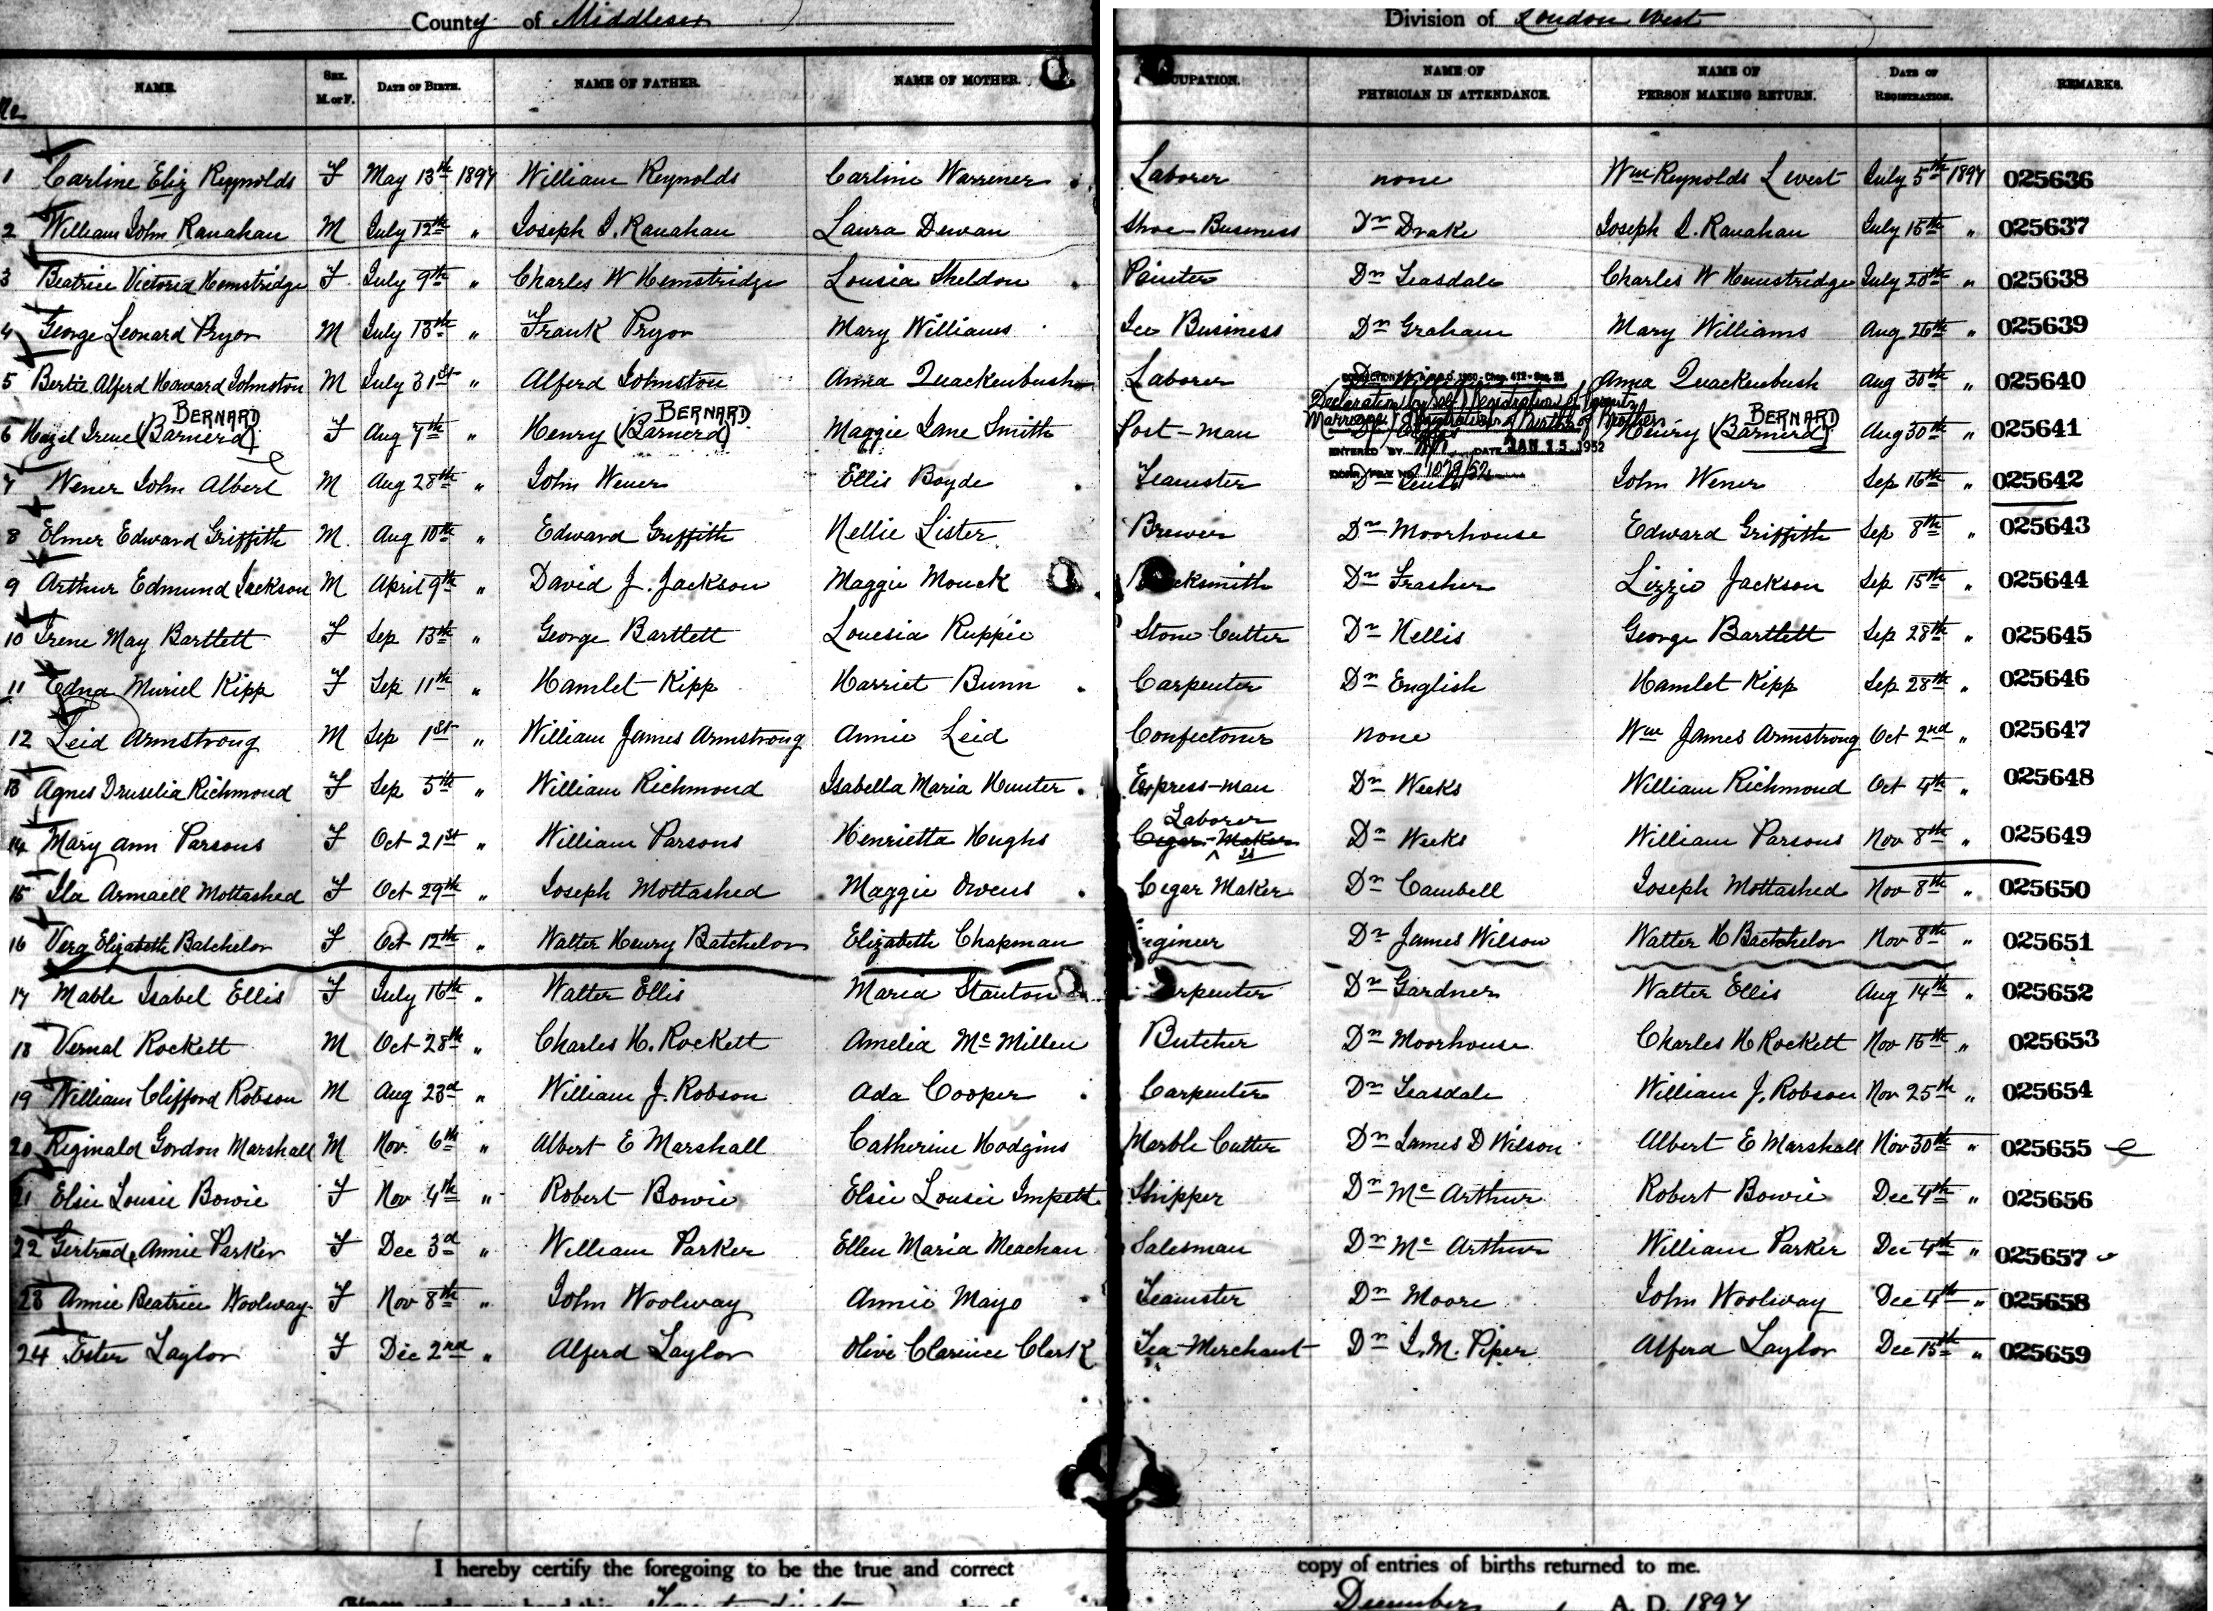 County of Middlesex Division of London West
NAME. SEX. M. or F. DATE OF BIRTH. NAME OF FATHER. NAME OF MOTHER. OCCUPATION. NAME OF PHYSICIAN IN ATTENDANCE. NAME OF PERSON MAKING RETURN. DATE OF REGISTRATION. REMARKS.
1 Carline Eliz Reynolds F May 13th 1897 William Reynolds Carline Warrener Laborer none Wm Reynolds July 5th 1897 025636
2 William John Ranahan M July 12th " Joseph I. Ranahan Laura Dewan Shoe Business Dr Drake Joseph I. Ranahan July 15th " 025637
3 Beatrice Victoria Hemstridge F July 9th " Charles W Hemstridge Lousia Sheldon Painter Dr Teasdale Charles W Hemstridge July 28th " 025638
4 George Leonard Pryor M July 13th " Frank Pryor Mary Williams Ice Business Dr Graham Mary Williams Aug 26th " 025639
5 Bertie Alferd Howard Johnston M July 31st " Alferd Johnston Anna Quackenbush Laborer Anna Quackenbush Aug 30th " 025640
6 Hazel Irene (Barnerd) BERNARD F Aug 7th " Henry (Barnerd) BERNARD Maggie Jane Smith Post-man Henry (Barnerd) BERNARD Aug 30th " 025641
Declaration by Self
ENTERED BY DATE JAN 15 1952
7 Wener John Albert M Aug 28th " John Wener Ellis Boyde Teamster John Wener Sep 16th " 025642
8 Elmer Edward Griffith M Aug 10th " Edward Griffith Nellie Lister Brewer Dr Moorhouse Edward Griffith Sep 8th " 025643
9 Arthur Edmund Jackson M April 9th " David J. Jackson Maggie Monck Blacksmith Dr Frasher Lizzie Jackson Sep 15th " 025644
10 Irene May Bartlett F Sep 13th " George Bartlett Louesia Ruppie Stone Cutter Dr Nellis George Bartlett Sep 28th " 025645
11 Edna Muriel Kipp F Sep 11th " Hamlet Kipp Harriet Bunn Carpenter Dr English Hamlet Kipp Sep 28th " 025646
12 Leid Armstrong M Sep 1st " William James Armstrong Annie Leid Confectoner none Wm James Armstrong Oct 2nd " 025647
13 Agnes Druselia Richmond F Sep 5th " William Richmond Isabella Maria Hunter Express-man Dr Weeks William Richmond Oct 4th " 025648
14 Mary Ann Parsons F Oct 21st " William Parsons Henrietta Hughs Cigar-Maker Laborer Dr Weeks William Parsons Nov 8th " 025649
15 Ila Armaell Mottashed F Oct 29th " Joseph Mottashed Maggie Owens Cegar Maker Dr Cambell Joseph Mottashed Nov 8th " 025650
16 Vera Elizabeth Batchelor F Oct 12th " Walter Henry Batchelor Elizabeth Chapman Engineer Dr James Wilson Walter H Batchelor Nov 8th " 025651
17 Mable Isabel Ellis F July 16th " Walter Ellis Maria Stanton Carpenter Dr Gardner Walter Ellis Aug 14th " 025652
18 Vernal Rockett M Oct 28th " Charles H. Rockett Amelia McMillen Butcher Dr Moorhouse Charles H Rockett Nov 15th " 025653
19 William Clifford Robson M Aug 23d " William J. Robson Ada Cooper Carpenter Dr Teasdale William J. Robson Nov 25th " 025654
20 Reginald Gordon Marshall M Nov. 6th " Albert E Marshall Catherine Hodgins Marble Cutter Dr James D Wilson Albert E Marshall Nov 30th " 025655
21 Elsie Lousie Bowie F Nov 4th " Robert Bowie Elsie Lousie Impett Shipper Dr McArthur Robert Bowie Dec 4th " 025656
22 Gertrude Annie Parker F Dec 3d " William Parker Ellen Maria Meachan Salesman Dr McArthur William Parker Dec 4th " 025657
23 Annie Beatrice Woolway F Nov 8th " John Woolway Annie Mayo Teamster Dr Moore John Woolway Dec 4th " 025658
24 Ester Taylor F Dec 2nd " Alferd Taylor Olive Clarince Clark Tea-Merchant Dr I. M. Piper Alferd Taylor Dec 15th " 025659
I hereby certify the foregoing to be the true and correct copy of entries of births returned to me.
December A. D. 1897